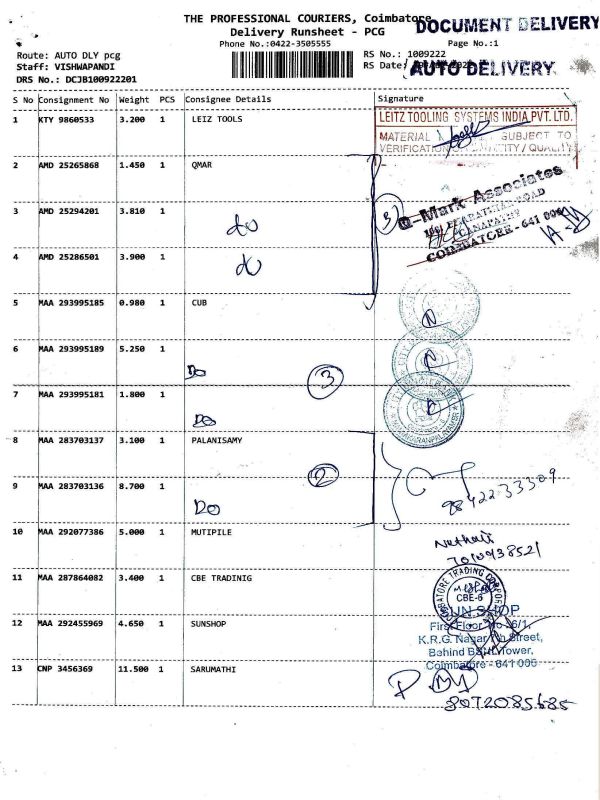 THE PROFESSIONAL COURIERS, Coimbatore
DOCUMENT DELIVERY
Delivery Runsheet - PCG
Phone No.:0422-3505555
Page No.:1
Route: AUTO DLY pcg
RS No.: 1009222
Staff: VISHWAPANDI
RS Date:
AUTO DELIVERY
DRS No.: DCJB100922201
S No Consignment No Weight PCS Consignee Details Signature
1 KTY 9860533 3.200 1 LEIZ TOOLS
LEITZ TOOLING SYSTEMS INDIA PVT. LTD.
MATERIAL SUBJECT TO
VERIFICATION QUANTITY / QUALITY
2 AMD 25265868 1.450 1 QMAR
3 AMD 25294201 3.810 1 do
3
Q-Mark Associates
BHARATHIAR ROAD
GANAPATHY
COIMBATORE - 641 006
4 AMD 25286501 3.900 1 do
5 MAA 293995185 0.980 1 CUB
6 MAA 293995189 5.250 1 Do
3
7 MAA 293995181 1.800 1 Do
8 MAA 283703137 3.100 1 PALANISAMY
2
9 MAA 283703136 8.700 1 Do
98422-33309
10 MAA 292077386 5.000 1 MUTIPILE
7010938521
11 MAA 287864082 3.400 1 CBE TRADINIG
COIMBATORE TRADING CORPORATION
CBE-6
12 MAA 292455969 4.650 1 SUNSHOP
SUN SHOP
First Floor No 6/1,
K.R.G. Nagar 7th Street,
Behind BSNL Tower,
Coimbatore - 641 006
13 CNP 3456369 11.500 1 SARUMATHI
8072085685